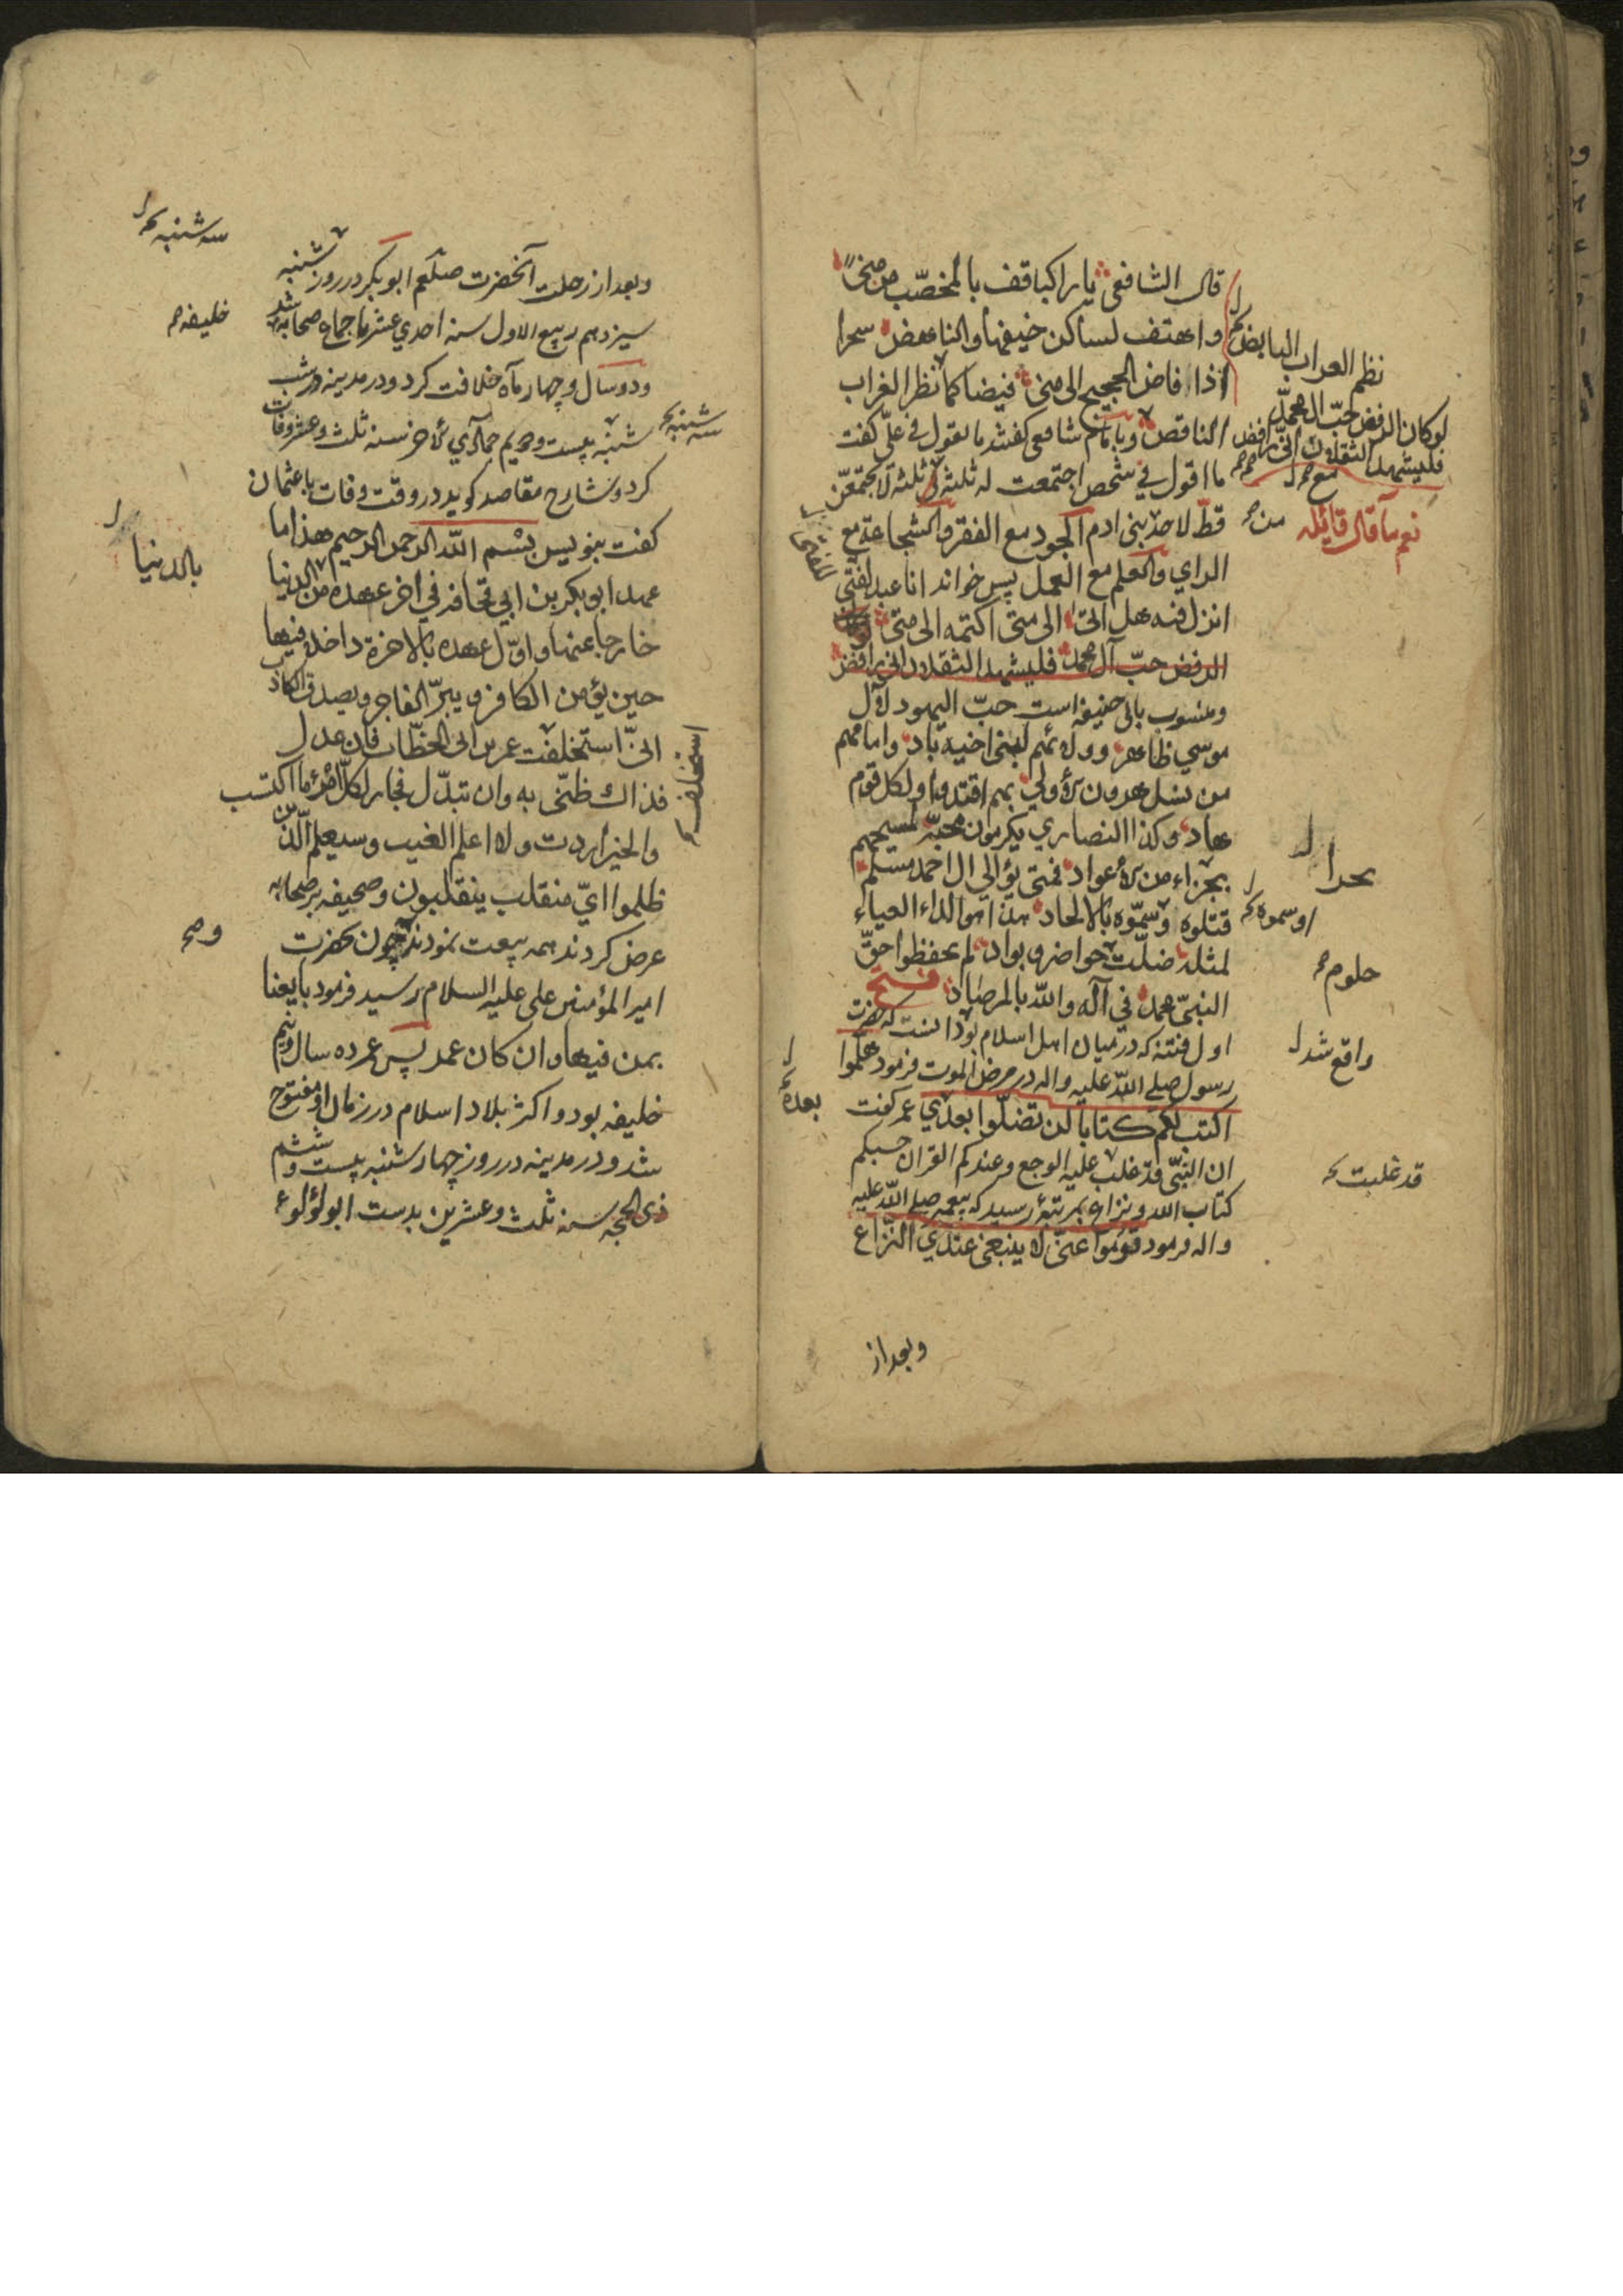 قال الشافعي يا راكبا قف بالمخصّب من منى
واهتف لساكن خيفها والناهض سحرا
اذا فاض الحجيج الى منى فيضا كما نظر الغراب
الناقض وبا امام شافعي كفتند ما تقول في علي كفت
ما اقول في شخص اجتمعت له ثلثة في ثلثة لا يجتمعن
قطّ لاحد بني ادم الجود مع الفقر والشجاعة مع
الراي والعلم مع العمل پس خواند انا عبد لفتى
انزل فيه هل اتى الى متى اكتمه الى متى
الرفض حبّ آل محمد فليشهد الثقلان اني رافض
ومنسوب بابي حنيفه است حبّ اليهود لآل
موسي ظاهر وولائهم لبني اخيه باد وامامهم
من نسل هرون الأولي بهم اقتدوا ولكل قوم
هاد وكذا النصاري يكرمون محبّة لمسيحهم
بجزاء من الأعواد فمتى يؤالي ال احمد مسلم
قتلوه وسمّوه بالالحاد هذا هو الداء العياء
لمثله ضلّت حواضر وبواد لم يحفظوا حقّ
النبيّ محمد في آله والله بالمرصاد فتح
اول فتنه كه درميان اهل اسلام بود انست كه حضرت
رسول صلى الله عليه واله در مرض الموت فرمود هلموا
اكتب لكم كتابا لن تضلّوا بعدي عمر كفت
ان النبّي قد غلب عليه الوجع وعندكم القران حسبكم
كتاب الله ونزاع بمرتبهٔ رسيد كه پيغمبر صلى الله عليه
واله فرمود قوموا عنّي لا ينبغي عندي النّزاع
وبعد از
لوكان الرفض حبّ ال محمّد
فليشهد الثقلان انّي رافض
نعم ما قال قائله
من
او سموه
حلوم
واقع شد
بعده
قد غلبت
وبعد از رحلت آنحضرت صلعم ابو بكر در روز شنبه
سيزدهم ربيع الاول سنه احدي عشر باجماع صحابه شد
ودو سال وچهار ماه خلافت كرد ودر مدينه در شب
شنبه بيست ودويم جمادي الأخر سنه ثلث وعشر وفات
كرد وشارح مقاصد كويد در وقت وفات با عثمان
كفت بنويس بسم الله الرحمن الرحيم هذا ما
عهد ابو بكر بن ابي قحافه في اخر عهده من الدنيا
خارجا عنها واوّل عهده بالاخرة داخلا فيها
حين يؤمن الكافر ويبرّ الفاجر ويصدق الكاذب
انيّ استخلفت عمر بن الخطّاب فان عدل
فذاك ظنّي به وان تبدّل فجار لكلّ امرئ ما اكتسب
والخير اردت ولا اعلم الغيب وسيعلم الّذين
ظلموا ايّ منقلب ينقلبون وصحيفه بر صحابه
عرض كردند همه بيعت نمودند چون بحضرت
امير المؤمنين علي عليه السلام رسيد فرمود بايعنا
بمن فيها وان كان عمر پس عمر ده سال ونيم
خليفه بود واكثر بلاد اسلام در زمان او مفتوح
شد ودر مدينه در روز چهار شنبه بيست وششم
ذي الحجه سنه ثلث وعشرين بدست ابو لؤلؤ
سه شنبه
خليفه
سه شنبه
بالدنيا
استخلف
وصح